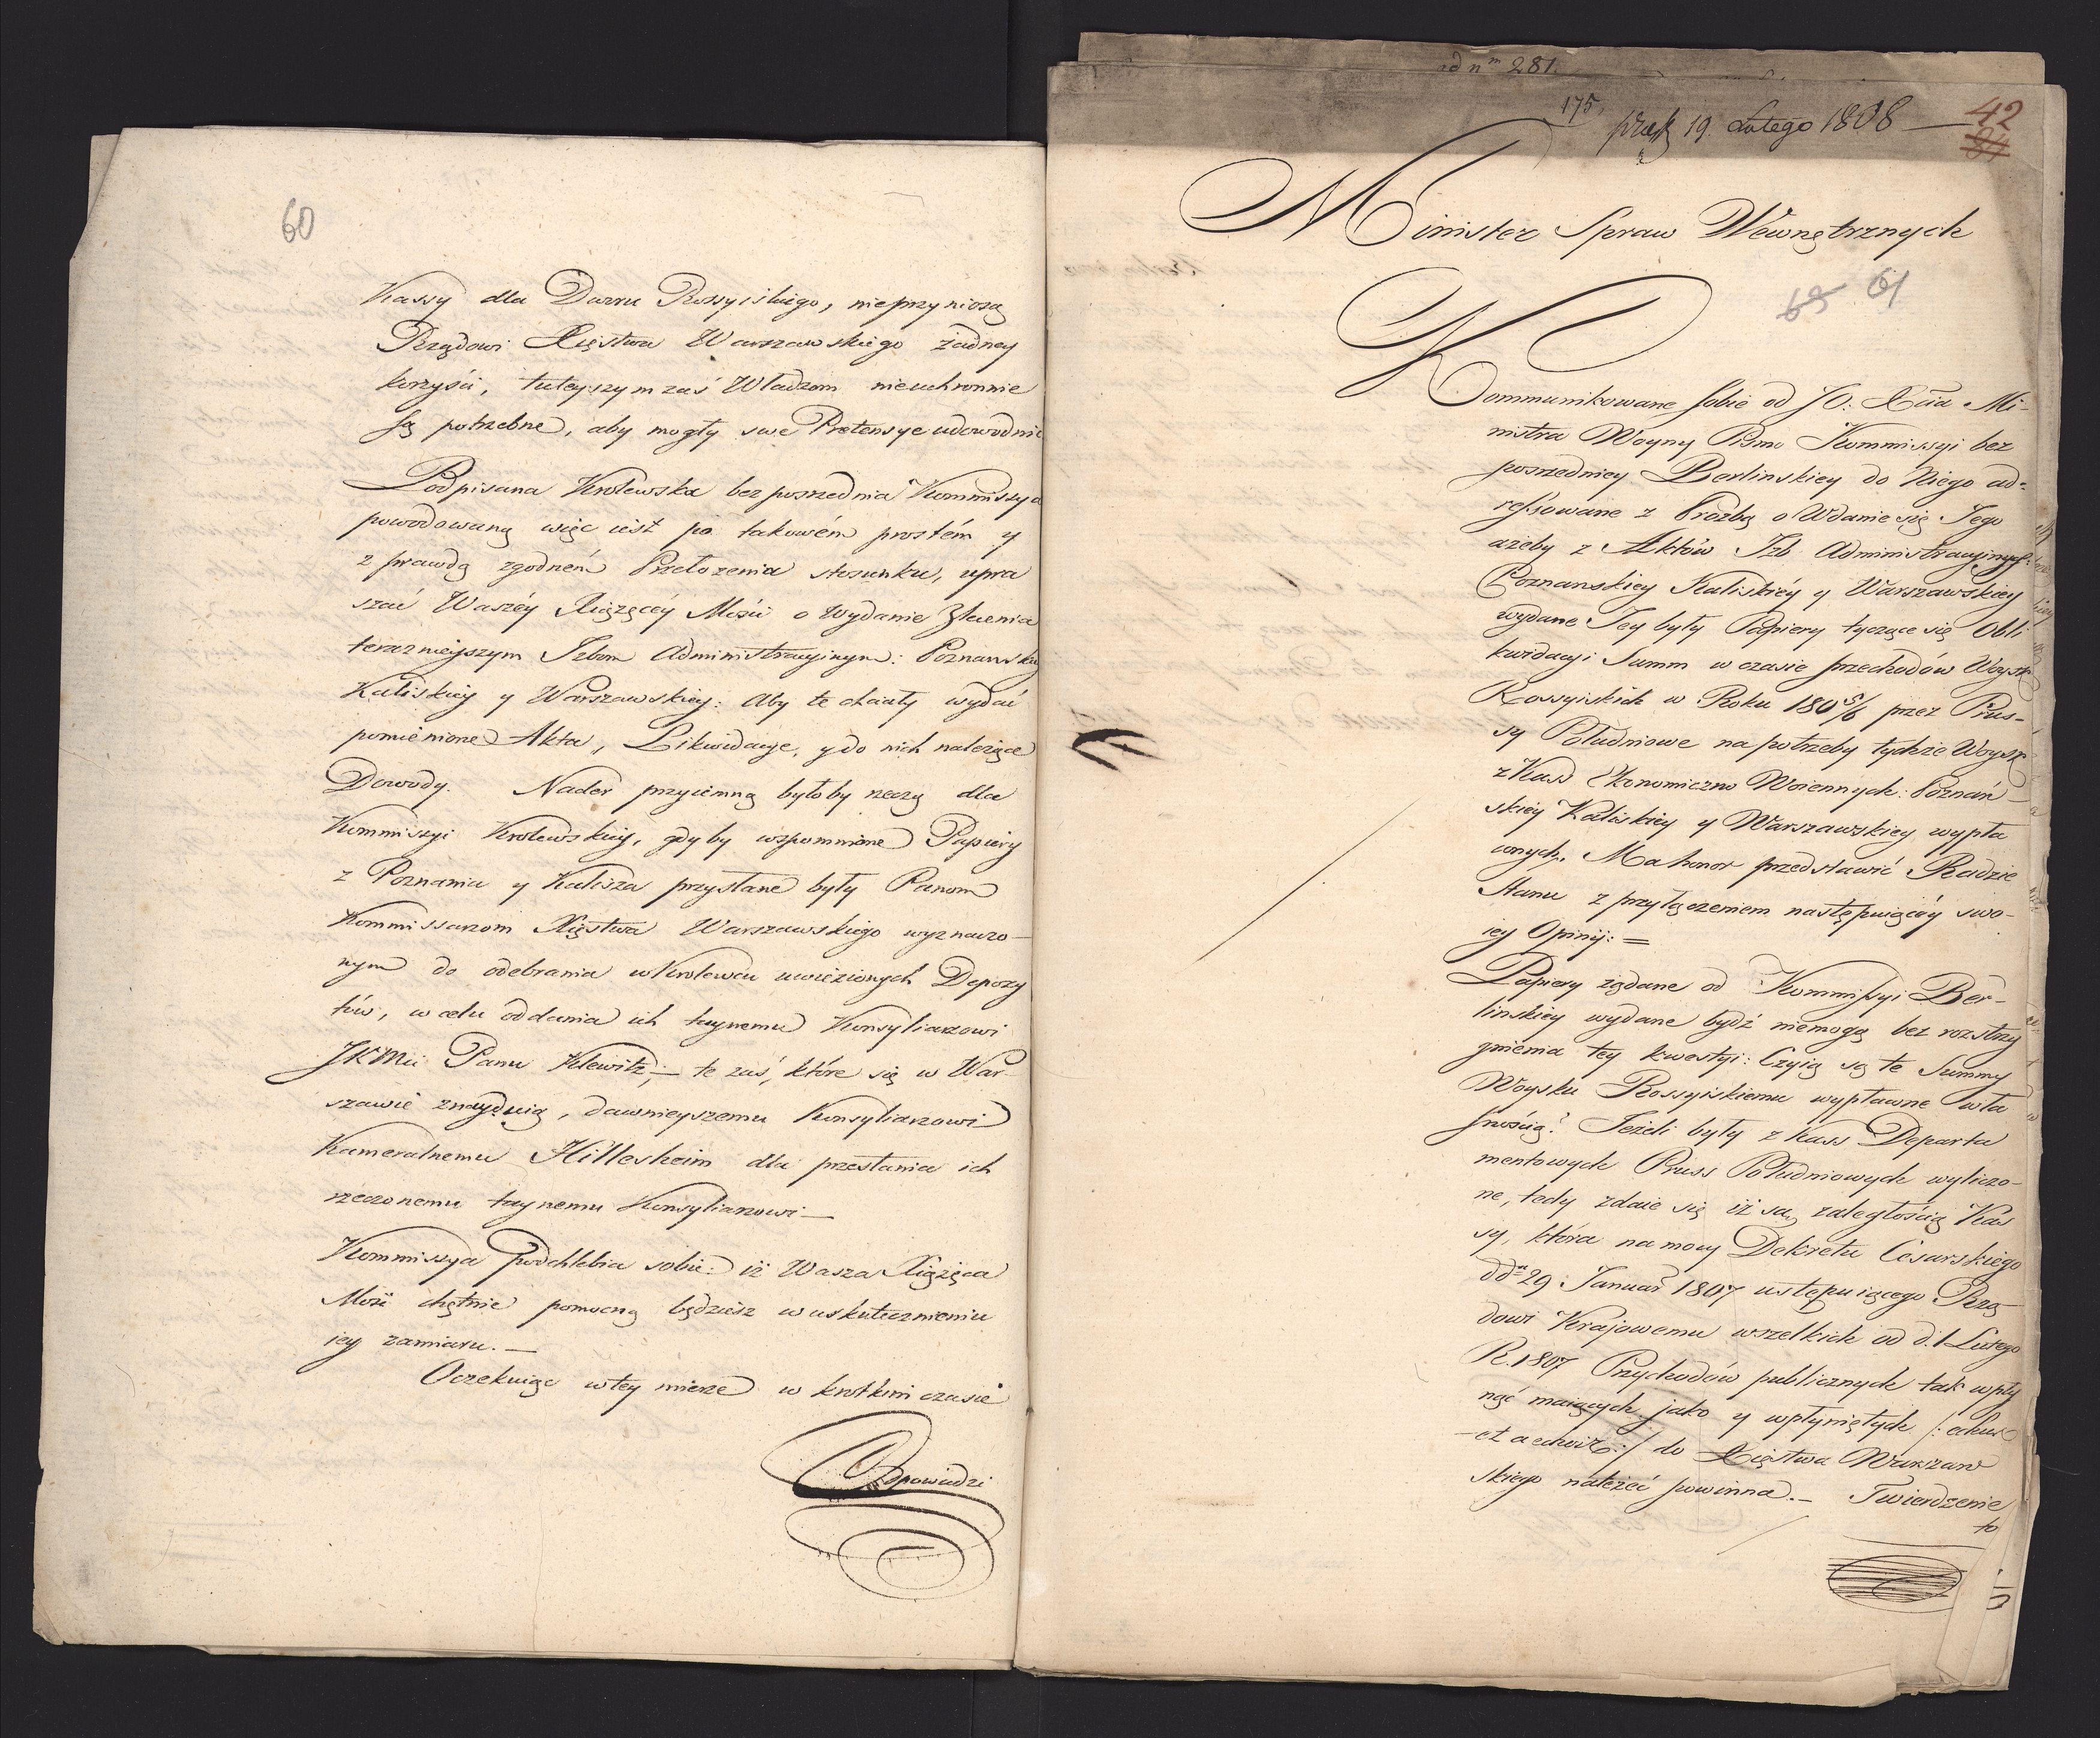 60
Kassy dla Dworu Rossyiskiego, nieprzyniosą
Rządowi Xięstwa Warszawskiego żadney
korzyści, tuteyszym zaś Władzom nieuchronnie
są potrzebne, aby mogły swe Pretensye udowodnić
Podpisana Krolewska bezposrzednia Kommissya
powodowaną więc iest po takowém prostém y
z prawdą zgodném Przełozenia stosunku, upra
szać Waszéy Xiążęcéy Mości o Wydanie Zlecenia
teraznieyszym Izbom Administracyinym: Poznanskiey
Kaliskiey y Warszawskiey: Aby te chciały wydać
pomienione Akta, Likwidacye, y do nich należące
Dowody. Nader przyiemną byłoby rzeczą dla
Kommissyi Krolewskiey, gdyby wspomnione Papiery
z Poznania y Kalisza przysłane były Panom
Kommissarzom Xięstwa Warszawskiego wyznaczo-
nym do odebrania w Krolewcu uwiezionych Depozy
tów, w celu oddania ich taynemu Konsyliarzowi
JKMci Panu Klewitz,- te zaś, które się w War-
szawie znayduią, dawnieyszemu Konsyliarzowi
Kameralnemu Hillesheim dla przesłania ich
rzeczonemu taynemu Konsyliarzowi -
Kommissya podchlebia sobie: iż Wasza Xiążęca
Mość chętnie pomocną będziesz w uskutecznieniu
iey zamiaru. -
Oczekuiąc w tey mierze w krótkim czasie
Odpowiedzi
ad nm 281.
175.
præs 19. Lutego 1808 -
42
Minister Spraw Wewnętrznych
69 61
Kommunikowane sobie od JO: Xcia Mi-
nistra Woyny Pismo Kommissyi bez
posrzedniey Berlinskiey do Niego ad-
ressowane z Prozbą o Wdanie się Jego
ażeby z Aktów Izb Administracyinych:
Poznanskiey Kaliskiéy y Warszawskiey
wydane Jey były Papiery tyczące się Obli
kwidacyi Summ w czasie przechodów Woysk
Rossyiskich w Roku 1805/6 przez Prus-
sy Południowe na potrzeby tychże Woysk
z Kass Ekonomiczno Woiennych: Poznań-
skiéy Kaliskiéy y Warszawskiey wypła
conych. Ma honor przedstawić Radzie
Stanu z przyłączeniem następuiącéy swo-
iey Opinij: =
Papiery żądane od Kommissyi Ber-
linskiey wydane bydź niemogą bez rozstrzy
gnienia tey kwestyi: Czyią są te Summy
Woysku Rossyiskiemu wypłacone wła
snością? Jeżeli były z Kass Departa
mentowych Pruss Południowych wyliczo-
ne, tedy zdaie się iż są zaległością Kas
sy, która na mocy Dekretu Cesarskiego
dd 29 Januar 1807 ustępuiącego Rzą
dowi Krajowemu wszelkich od d. 1 Lutego
R. 1807 Przychodów publicznych tak wpły
nąć maiących jako y wpłyniętych /: echus
-et a echoir:/ do Xięstwa Warszaw
skiego należeć powinna. - Twierdzenie
to